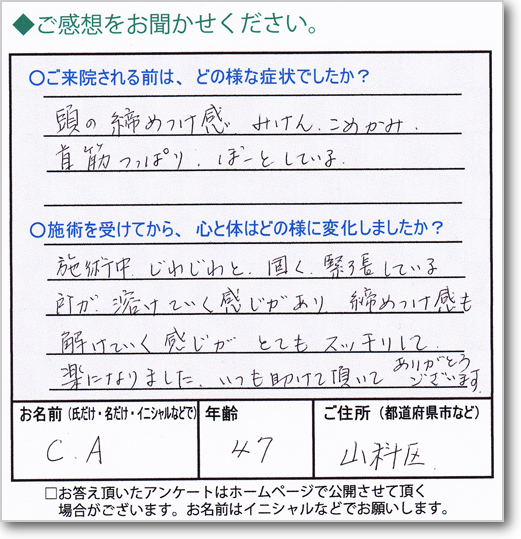 ◆ご感想をお聞かせください。
〇ご来院される前は、どの様な症状でしたか？
頭の締めつけ感 みけん.こめかみ.
首筋つっぱり. ぼーとしている.
〇施術を受けてから、心と体はどの様に変化しましたか？
施術中.じわじわと.固く.緊張している
所が.溶けていく感じがあり.締めつけ感も
解けていく感じが とてもスッキリして.
楽になりました.いつも助けて頂いて ありがとうございます.
お名前（氏だけ・名だけ・イニシャルなどで） 年齢 ご住所（都道府県市など）
C.A 47 山科区.
□お答え頂いたアンケートはホームページで公開させて頂く
場合がございます。お名前はイニシャルなどでお願いします。